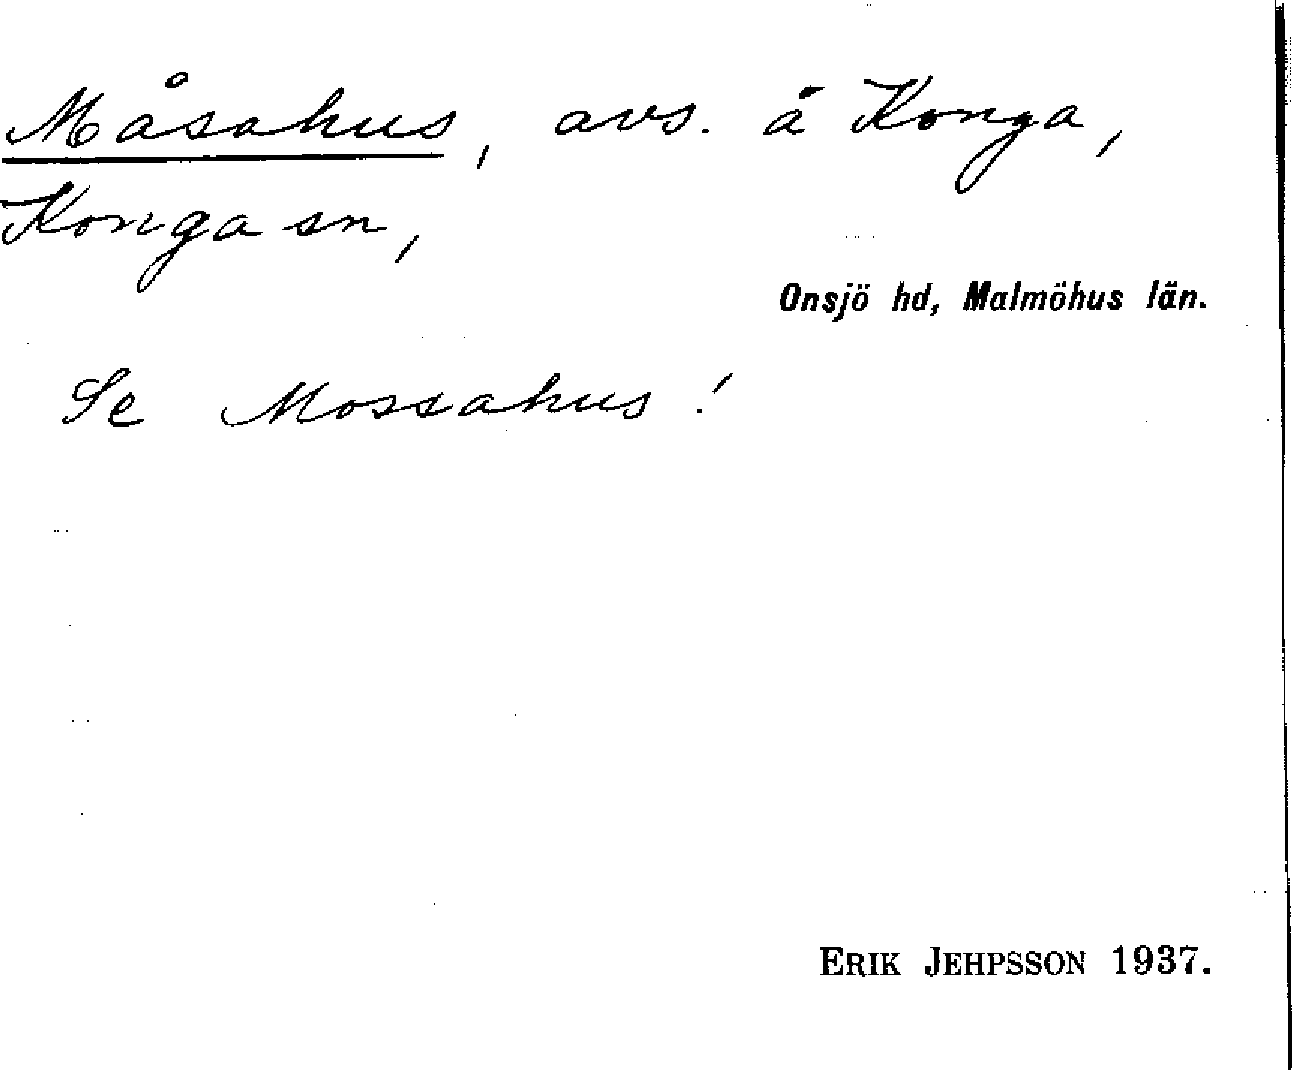 Måsahus, avs. å Konga,
Konga sn,
Onsjö hd, Malmöhus län.
Se Mossahus!
ERIK JEHPSSON 1937.